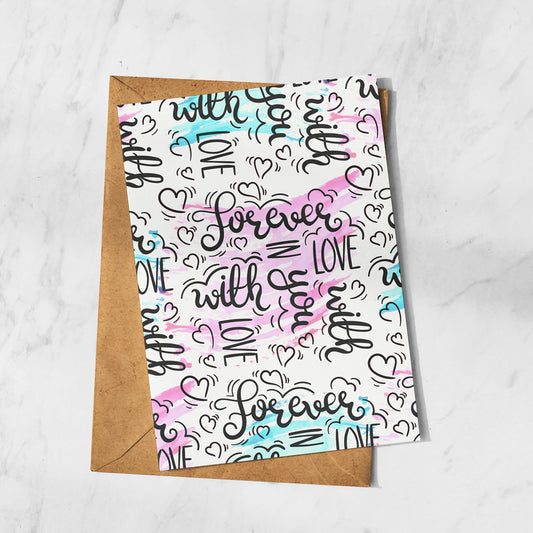 with you
with
with
LOVE
forever
IN LOVE
LOVE
with you
with
with
LOVE
forever
IN LOVE
LOVE